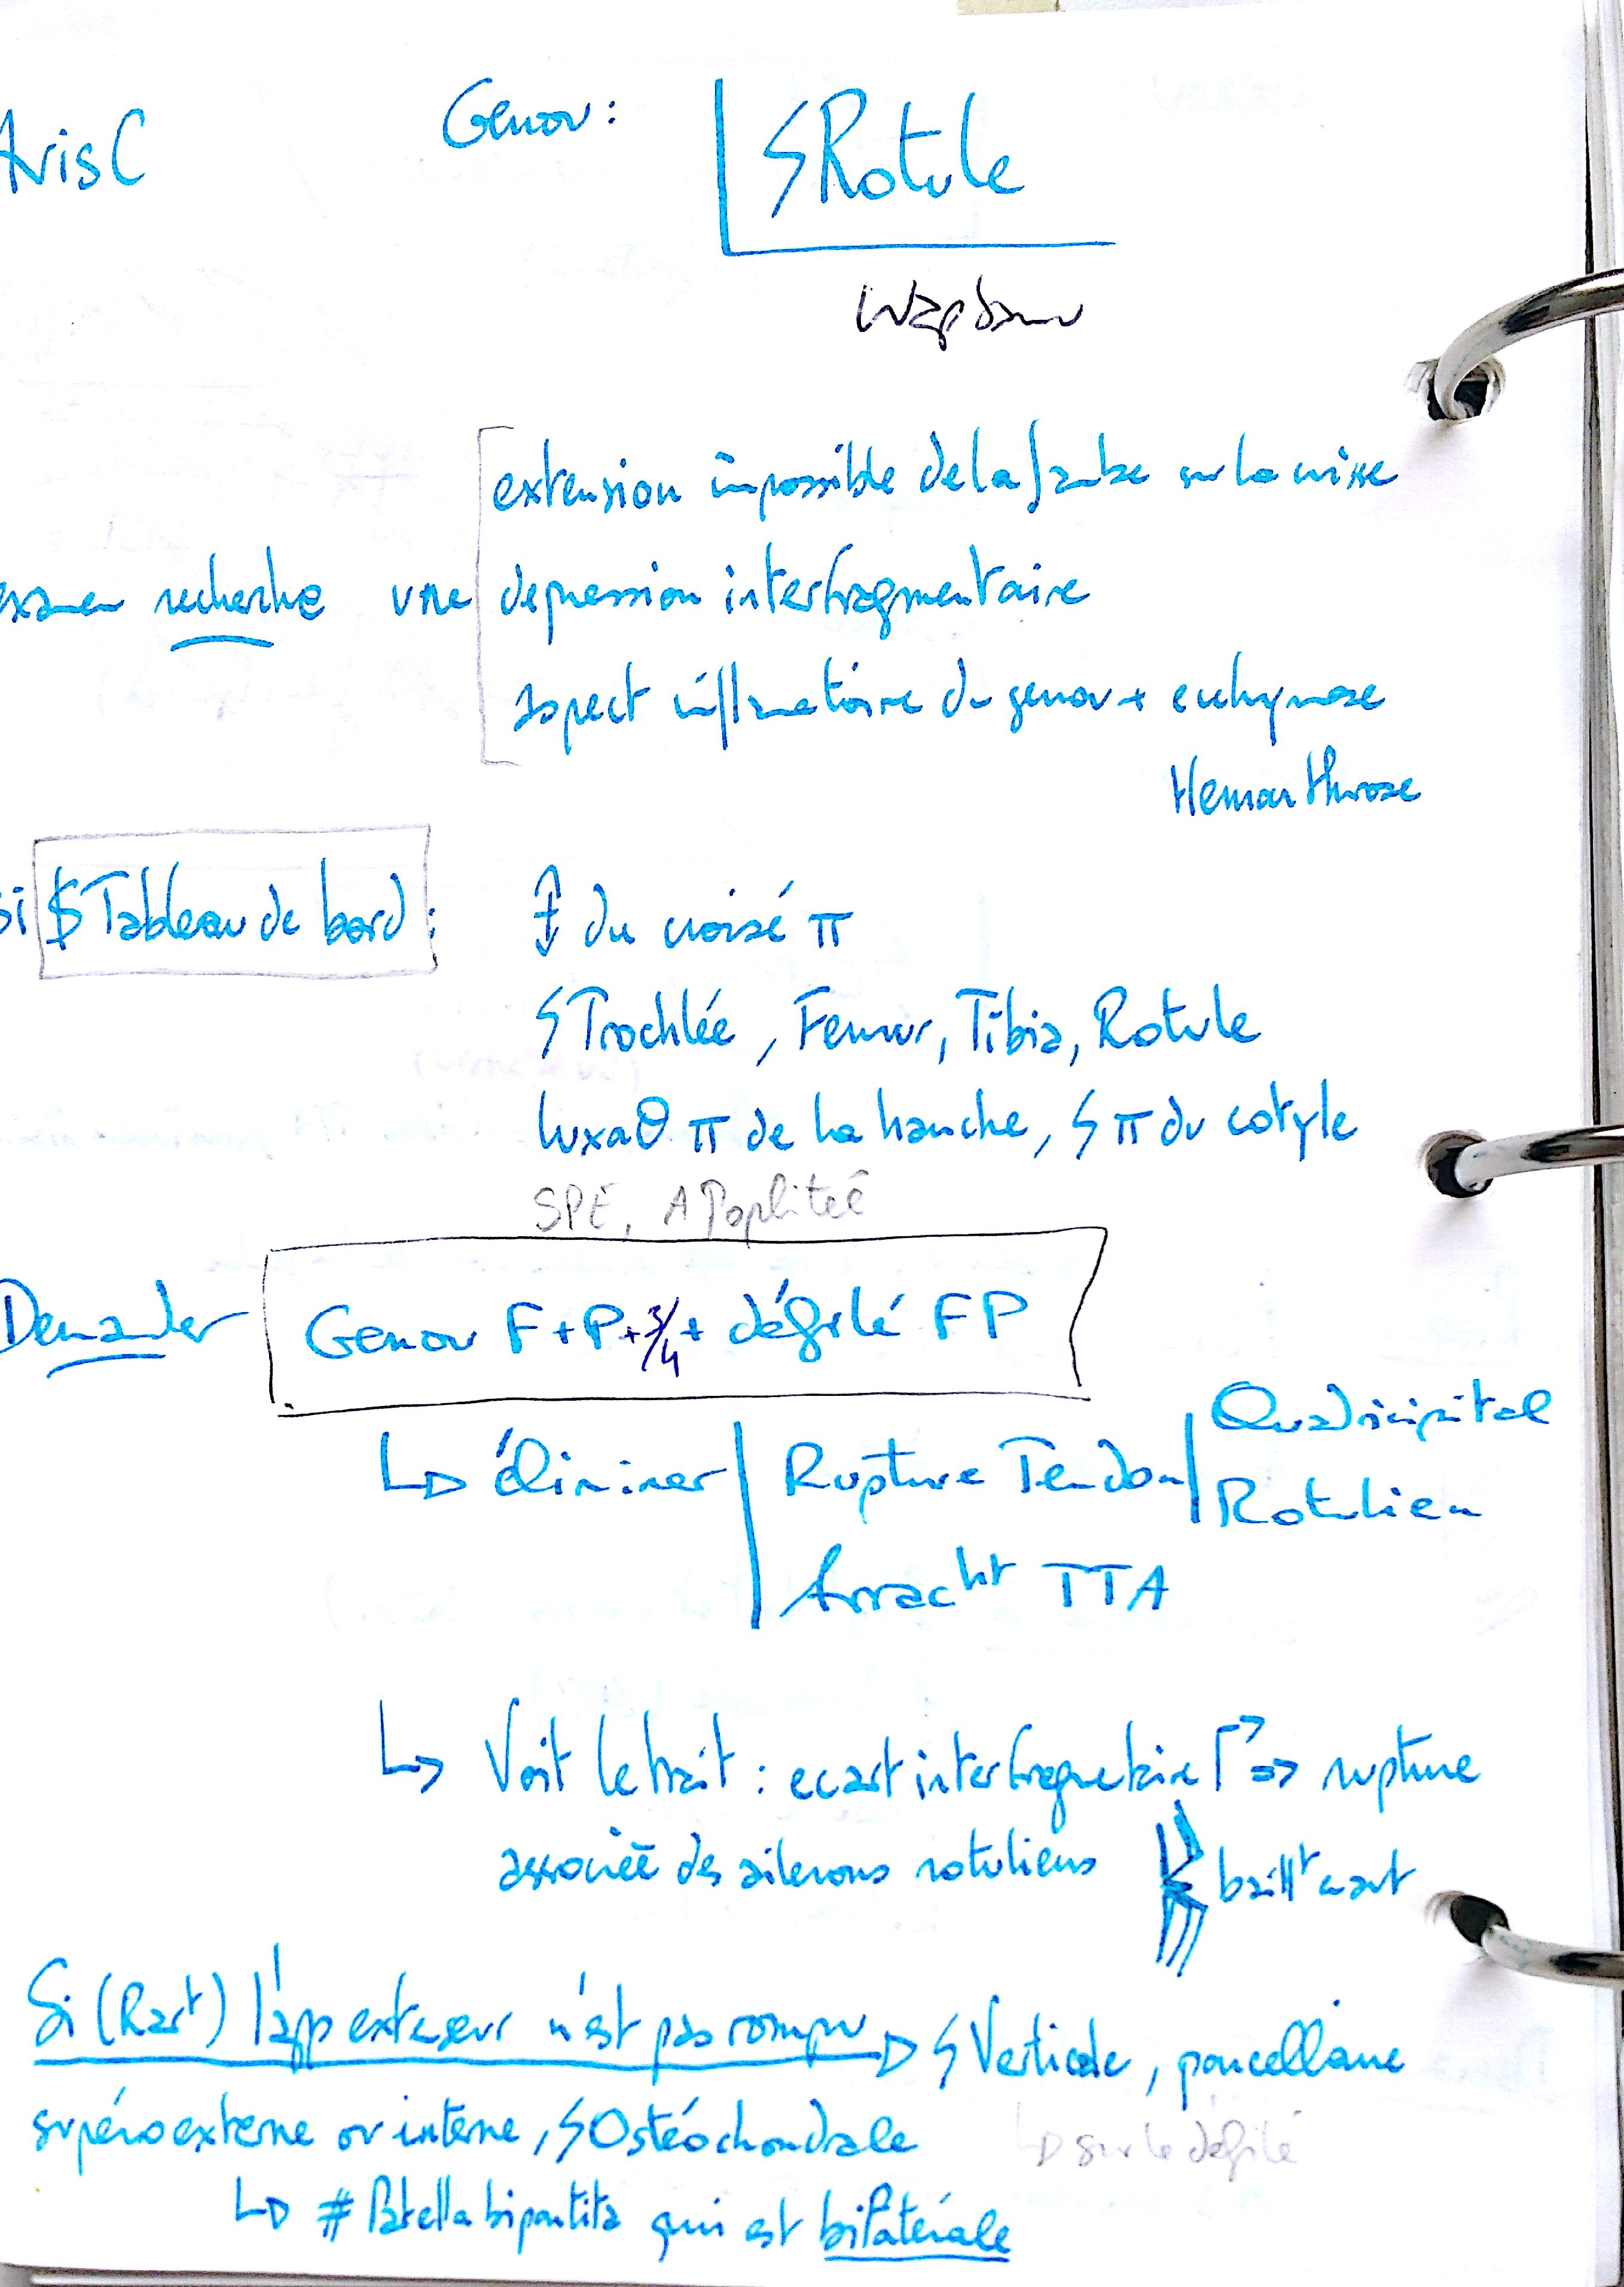 Avis C
Genou :
ϟ Rotule
extension impossible de la jambe sur la cuisse
examen recherche une dépression interfragmentaire
aspect inflamatoire du genou + ecchymose
Hemarthrose
si $ Tableau de bord :
du croisé π
ϟ Trochlée, Femur, Tibia, Rotule
luxaθ π de la hanche, ϟ π du cotyle
SPE, A Poplitée
Demander Genou F + P + 3/4 + défilé FP
↳ éliminer Rupture Tendon Quadricipital
Rotulien
Arracht TTA
↳ Voit le trait : ecart interfragmetaire ⇒ rupture
associée des ailerons rotuliens
Si (Rart) l'app extenseur n'est pas rompu ▷ ϟ Verticale, parcellaire
supéro externe ou interne, ϟ Ostéochondrale
↳ sur le défilé
↳ # Patella bipartita qui est bilatérale